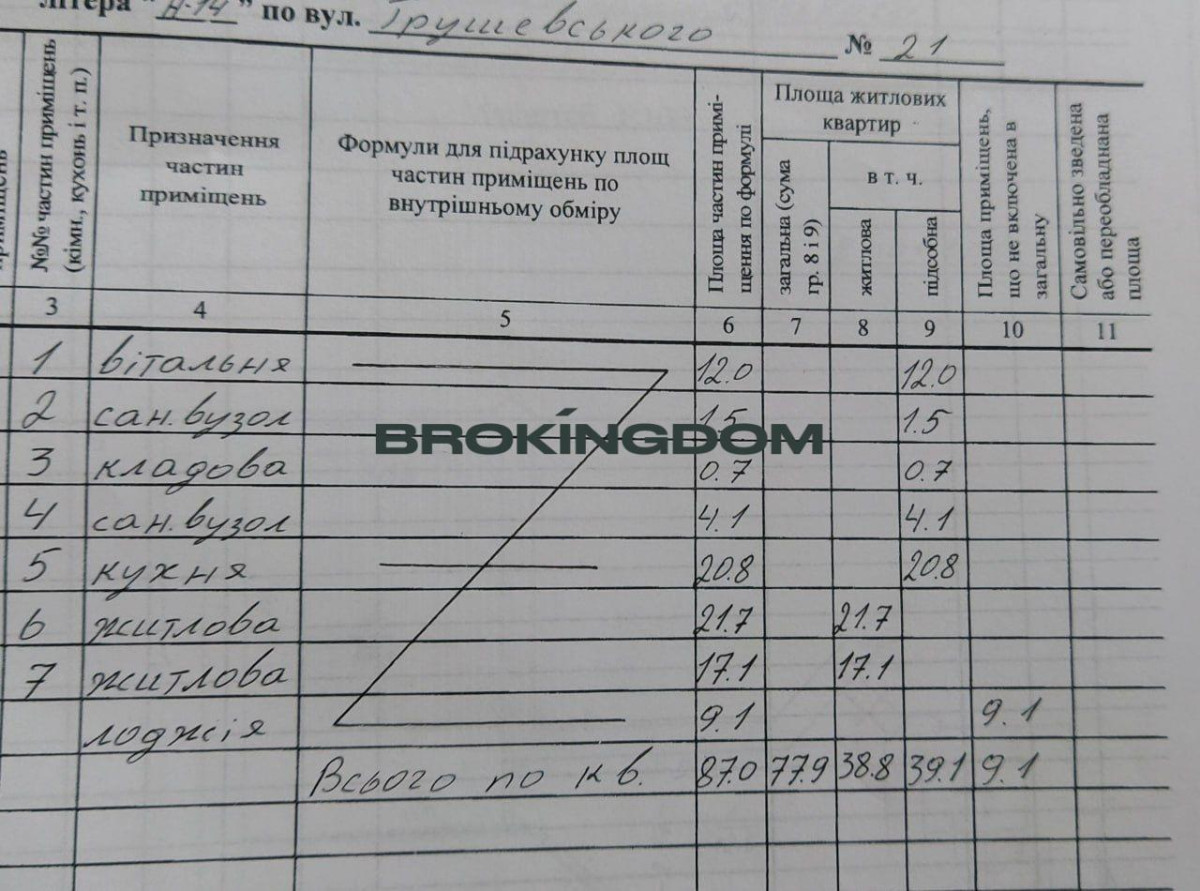 літера " Н-14 " по вул. Грушевського № 21
приміщень
№№ частин приміщень (кімн., кухонь і т. п.)
Призначення частин приміщень
Формули для підрахунку площ частин приміщень по внутрішньому обміру
Площа частин приміщення по формулі
Площа житлових квартир
загальна (сума гр. 8 і 9)
в т. ч.
житлова
підсобна
Площа приміщень, що не включена в загальну
Самовільно зведена або переобладнана площа
3 4 5 6 7 8 9 10 11
1 вітальня 12.0 12.0
2 сан.вузол 1.5 1.5
BROKINGDOM
3 кладова 0.7 0.7
4 сан.вузол 4.1 4.1
5 кухня 20.8 20.8
6 житлова 21.7 21.7
7 житлова 17.1 17.1
лоджія 9.1 9.1
Всього по кв. 87.0 77.9 38.8 39.1 9.1